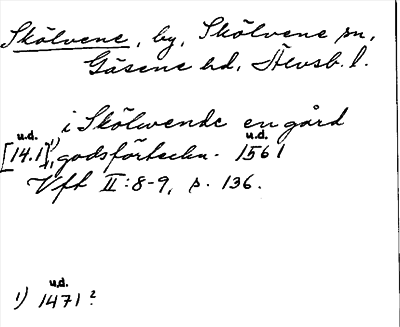 Skölvene, by, Skölvene sn,
Gäsene hd, Älvsb. l.
i Skölwende en gård
u.d. u.d.
[14.1], 1) godsförteckn. 1561
Vft II:8-9, s. 136.
u.d.
1) 1471?